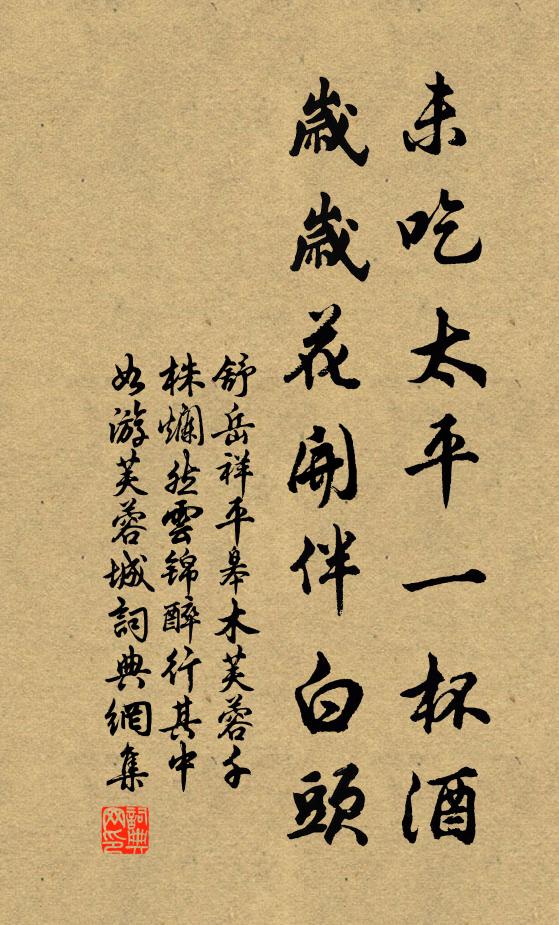 未吃太平一杯酒
歲歲花開伴白頭
舒岳祥平皋木芙蓉千
株爛然雲錦醉行其中
如游芙蓉城詞典網集
詞典网印